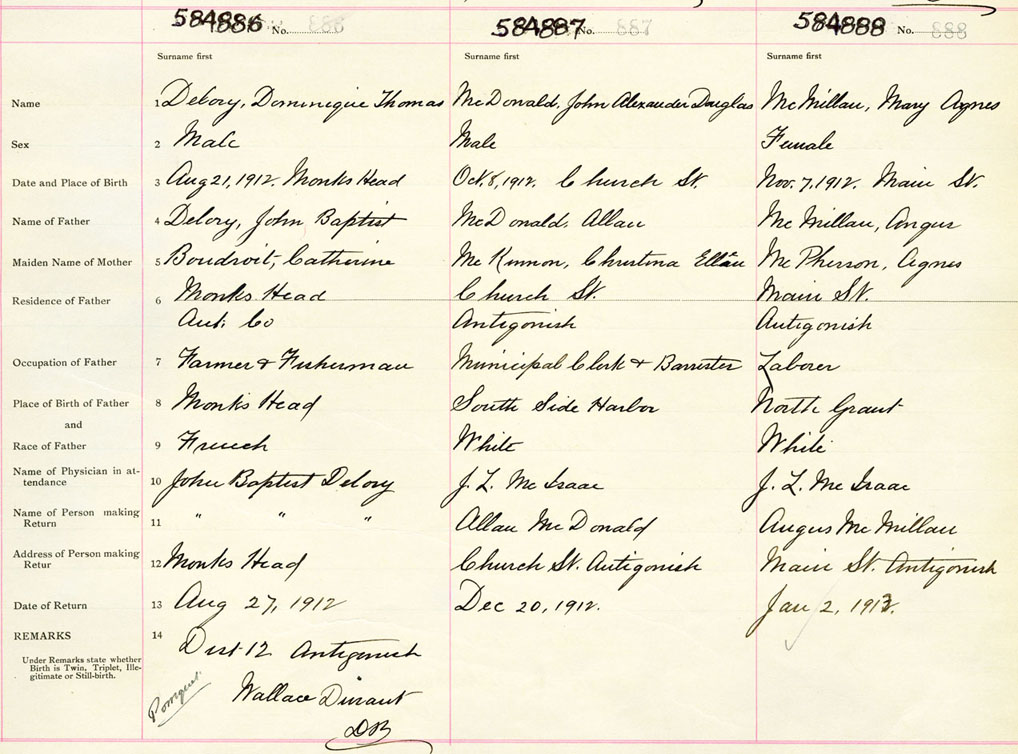 584886 No. 886 584887 No. 887 584888 No. 888
Surname first Surname first Surname first
Name 1 Delory, Dominique Thomas McDonald, John Alexander Douglas McMillan, Mary Agnes
Sex 2 Male Male Female
Date and Place of Birth 3 Aug 21, 1912. Monks Head Oct. 8, 1912. Church St. Nov. 7, 1912. Main St.
Name of Father 4 Delory, John Baptist McDonald, Allan McMillan, Angus
Maiden Name of Mother 5 Boudroit, Catherine McKinnon, Christina Ellen McPherson, Agnes
Residence of Father 6 Monks Head Church St. Main St.
Ant. Co Antigonish Antigonish
Occupation of Father 7 Farmer & Fisherman Municipal Clerk & Barrister Laborer
Place of Birth of Father 8 Monks Head South Side Harbor North Grant
and
Race of Father 9 French White White
Name of Physician in at-
tendance 10 John Baptist Delory J. L. McIsaac J. L. McIsaac
Name of Person making
Return 11 " " " Allan McDonald Angus McMillan
Address of Person making
Retur 12 Monks Head Church St. Antigonish Main St. Antigonish
Date of Return 13 Aug 27, 1912 Dec 20, 1912. Jan 2, 1913.
REMARKS 14 Dist 12 Antigonish
Under Remarks state whether
Birth is Twin, Triplet, Ille-
gitimate or Still-birth.
Pomquet Wallace Durant
DR